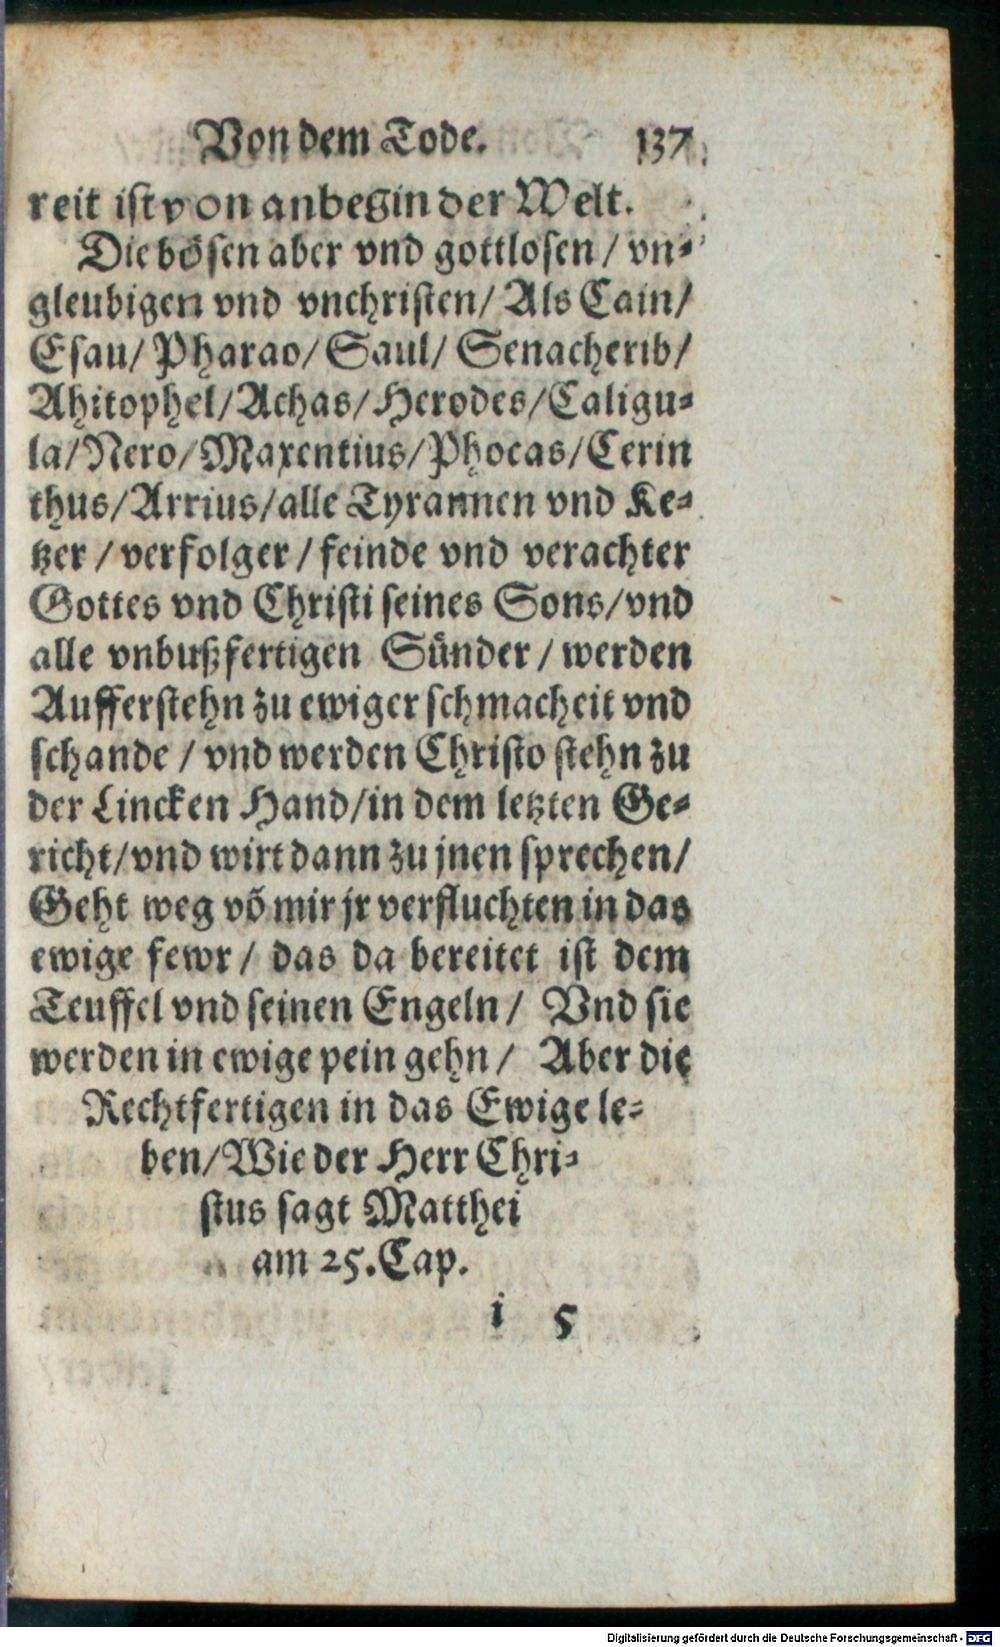 Von dem Tode. 137
reit ist von anbegin der Welt.
Die bösen aber vnd gottlosen / vn⸗
gleubigen vnd vnchristen/ Als Cain/
Esau/ Pharao/ Saul/ Senacherib/
Ahitophel/Achas/Herodes/Caligu⸗
la/Nero/Maxentius/Phocas/Cerin
thus/Arrius/alle Tyrannen vnd Ke⸗
tzer / verfolger / feinde vnd verachter
Gottes vnd Christi seines Sons/vnd
alle vnbußfertigen Sünder / werden
Aufferstehn zu ewiger schmacheit vnd
schande / vnd werden Christo stehn zu
der Lincken Hand/in dem letzten Ge⸗
richt/vnd wirt dann zu jnen sprechen/
Geht weg võ mir jr verfluchten in das
ewige fewr / das da bereitet ist dem
Teuffel vnd seinen Engeln / Vnd sie
werden in ewige pein gehn / Aber die
Rechtfertigen in das Ewige le⸗
ben/Wie der Herr Chri⸗
stus sagt Matthei
am 25. Cap.
i 5
Digitalisierung gefördert durch die Deutsche Forschungsgemeinschaft - DFG